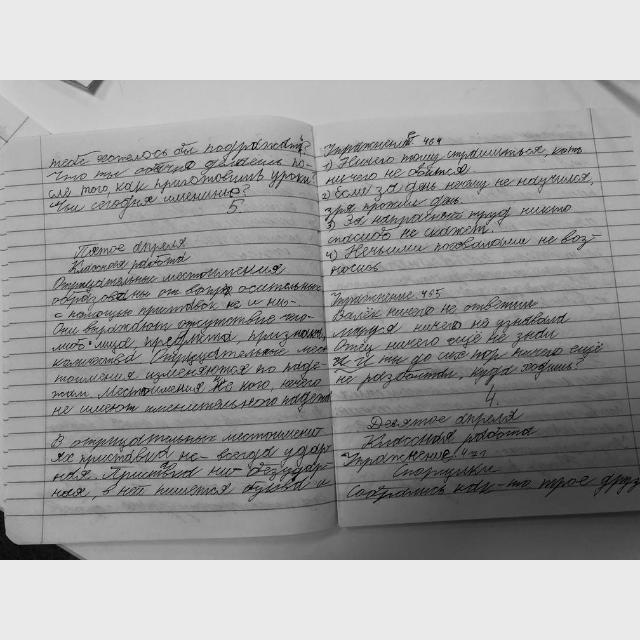 тебе хотелось бы подражать?
Что ты обычно делаешь по-
сле того, как приготовишь уроки?
Чьи сегодня именины?
5.
Пятое апреля
Классная работа
Отрицательные местоимения
образованы от вопросительных
с помощью приставок не и ни-
Они выражают отсутствие
лица предмета признака,
количества Отрицательные мес
тоимения изменяются по паде-
жам Местоимения Не кого, нечего
не имеют именительного падежа
В отрицательных местоимени-
ях приставка не- всегда удар-
ная. Приставка ни- безудар-
ная, в ней пишется буква и
Упражнение 464
1) Ничего тому страшиться, кто
ничего не боится
2) Если за день ничему не научился,
зря прожит день.
3) За напрасный труд никто
спасибо не скажет
4) Ничьими похвалами не воз-
носись
Упражнение 465
Валёк ничего не ответил
Маруся ничего не узнавала
Отец ничего ещё не знал
И ты до сих пор никто ещё
не разболтал, куда ходишь?
4.
Десятое апреля
Классная работа
Упражнение
Спорщики
Собрались как-то трое друз